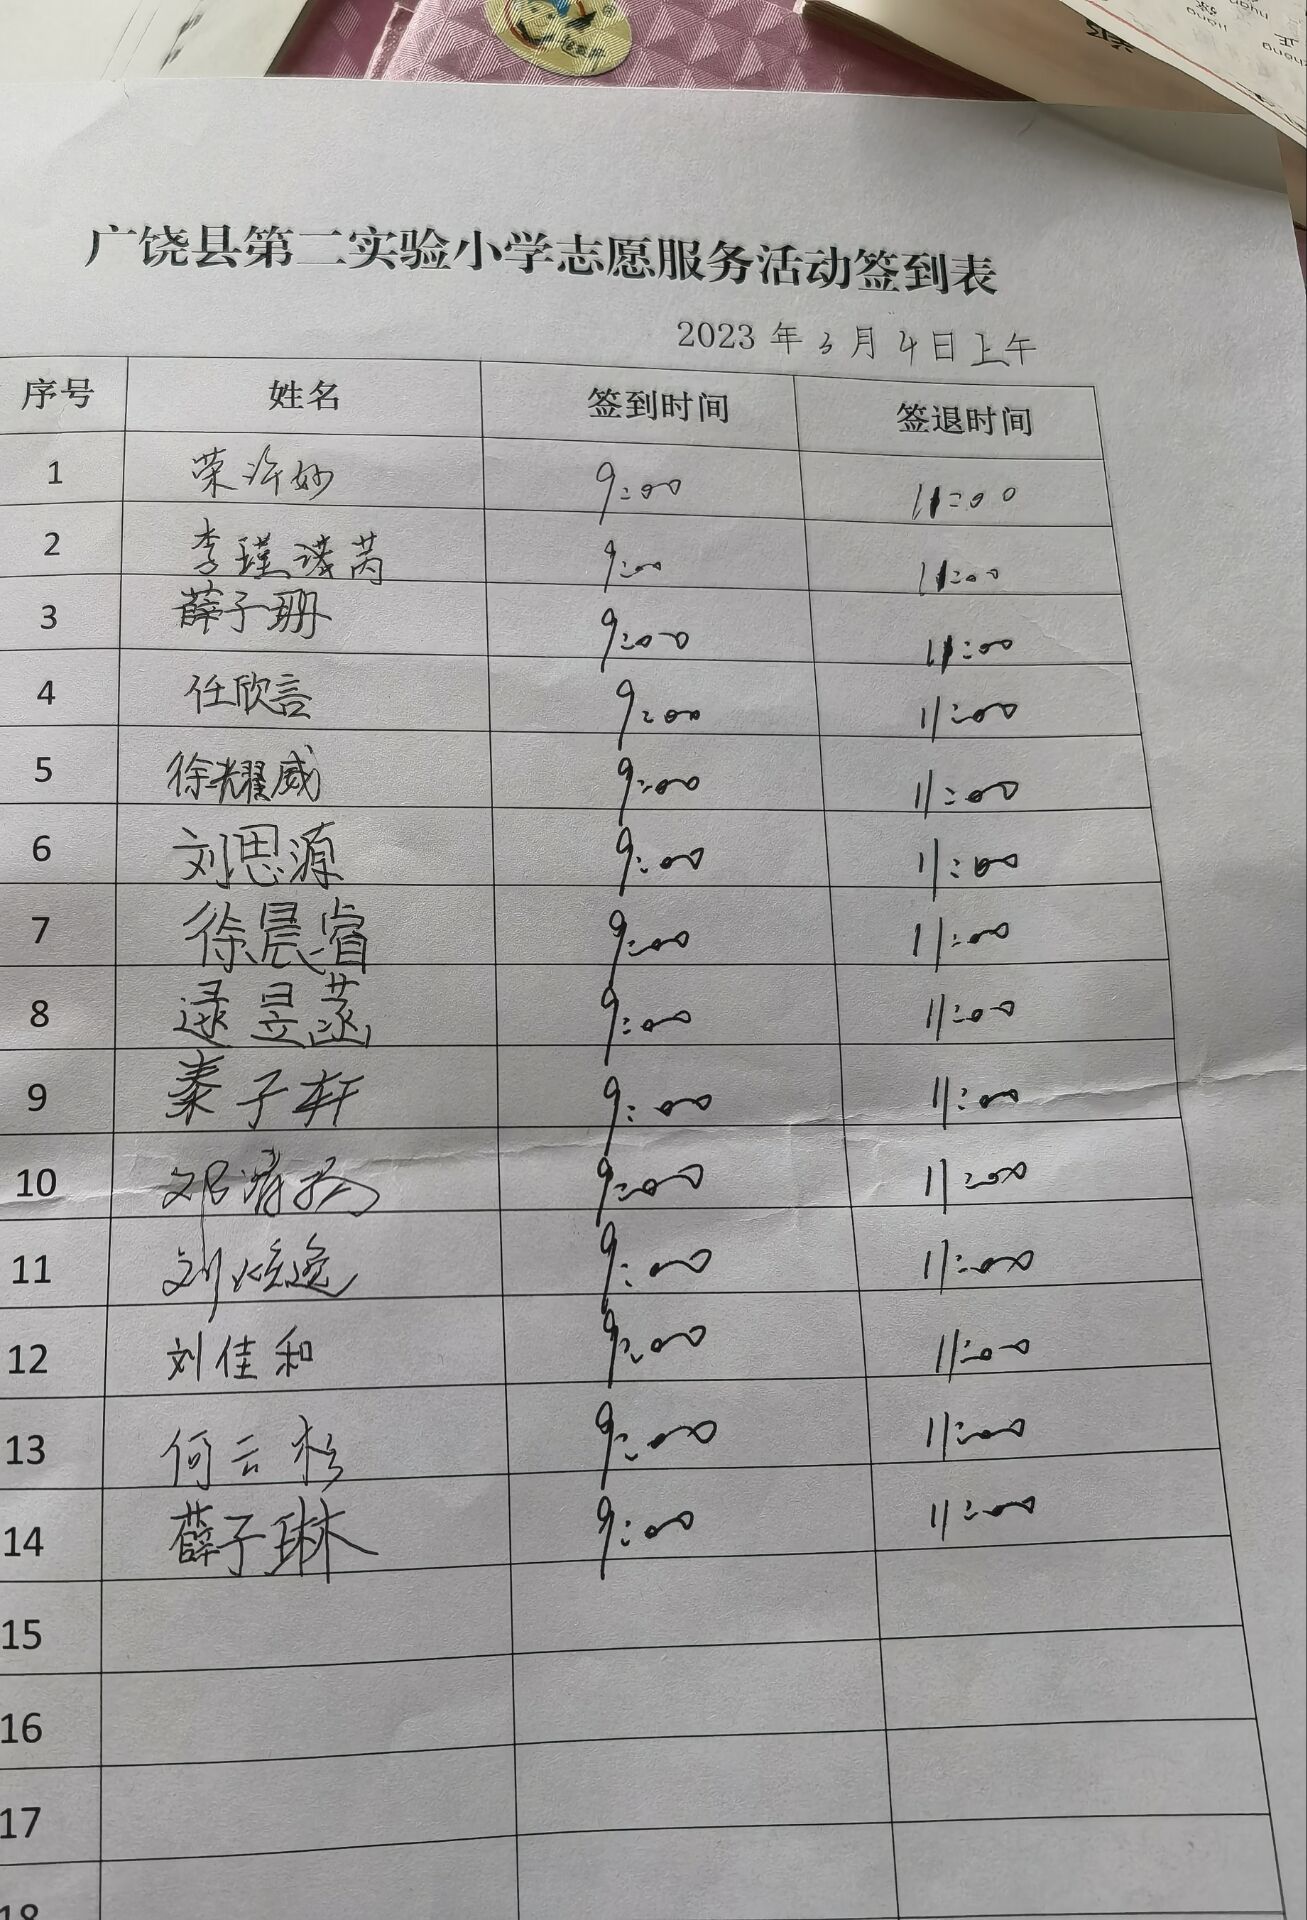 广饶县第二实验小学志愿服务活动签到表
2023 年 3 月 4 日上午
序号 姓名 签到时间 签退时间
1 荣许妙 9:00 11:00
2 李瑾诺芮 9:00 11:00
3 薛子珊 9:00 11:00
4 任欣言 9:00 11:00
5 徐耀威 9:00 11:00
6 刘思源 9:00 11:00
7 徐晨睿 9:00 11:00
8 逯昱菡 9:00 11:00
9 秦子轩 9:00 11:00
10 邓 9:00 11:00
11 刘炫逸 9:00 11:00
12 刘佳和 9:00 11:00
13 何云杉 9:00 11:00
14 薛子琳 9:00 11:00
15
16
17
18